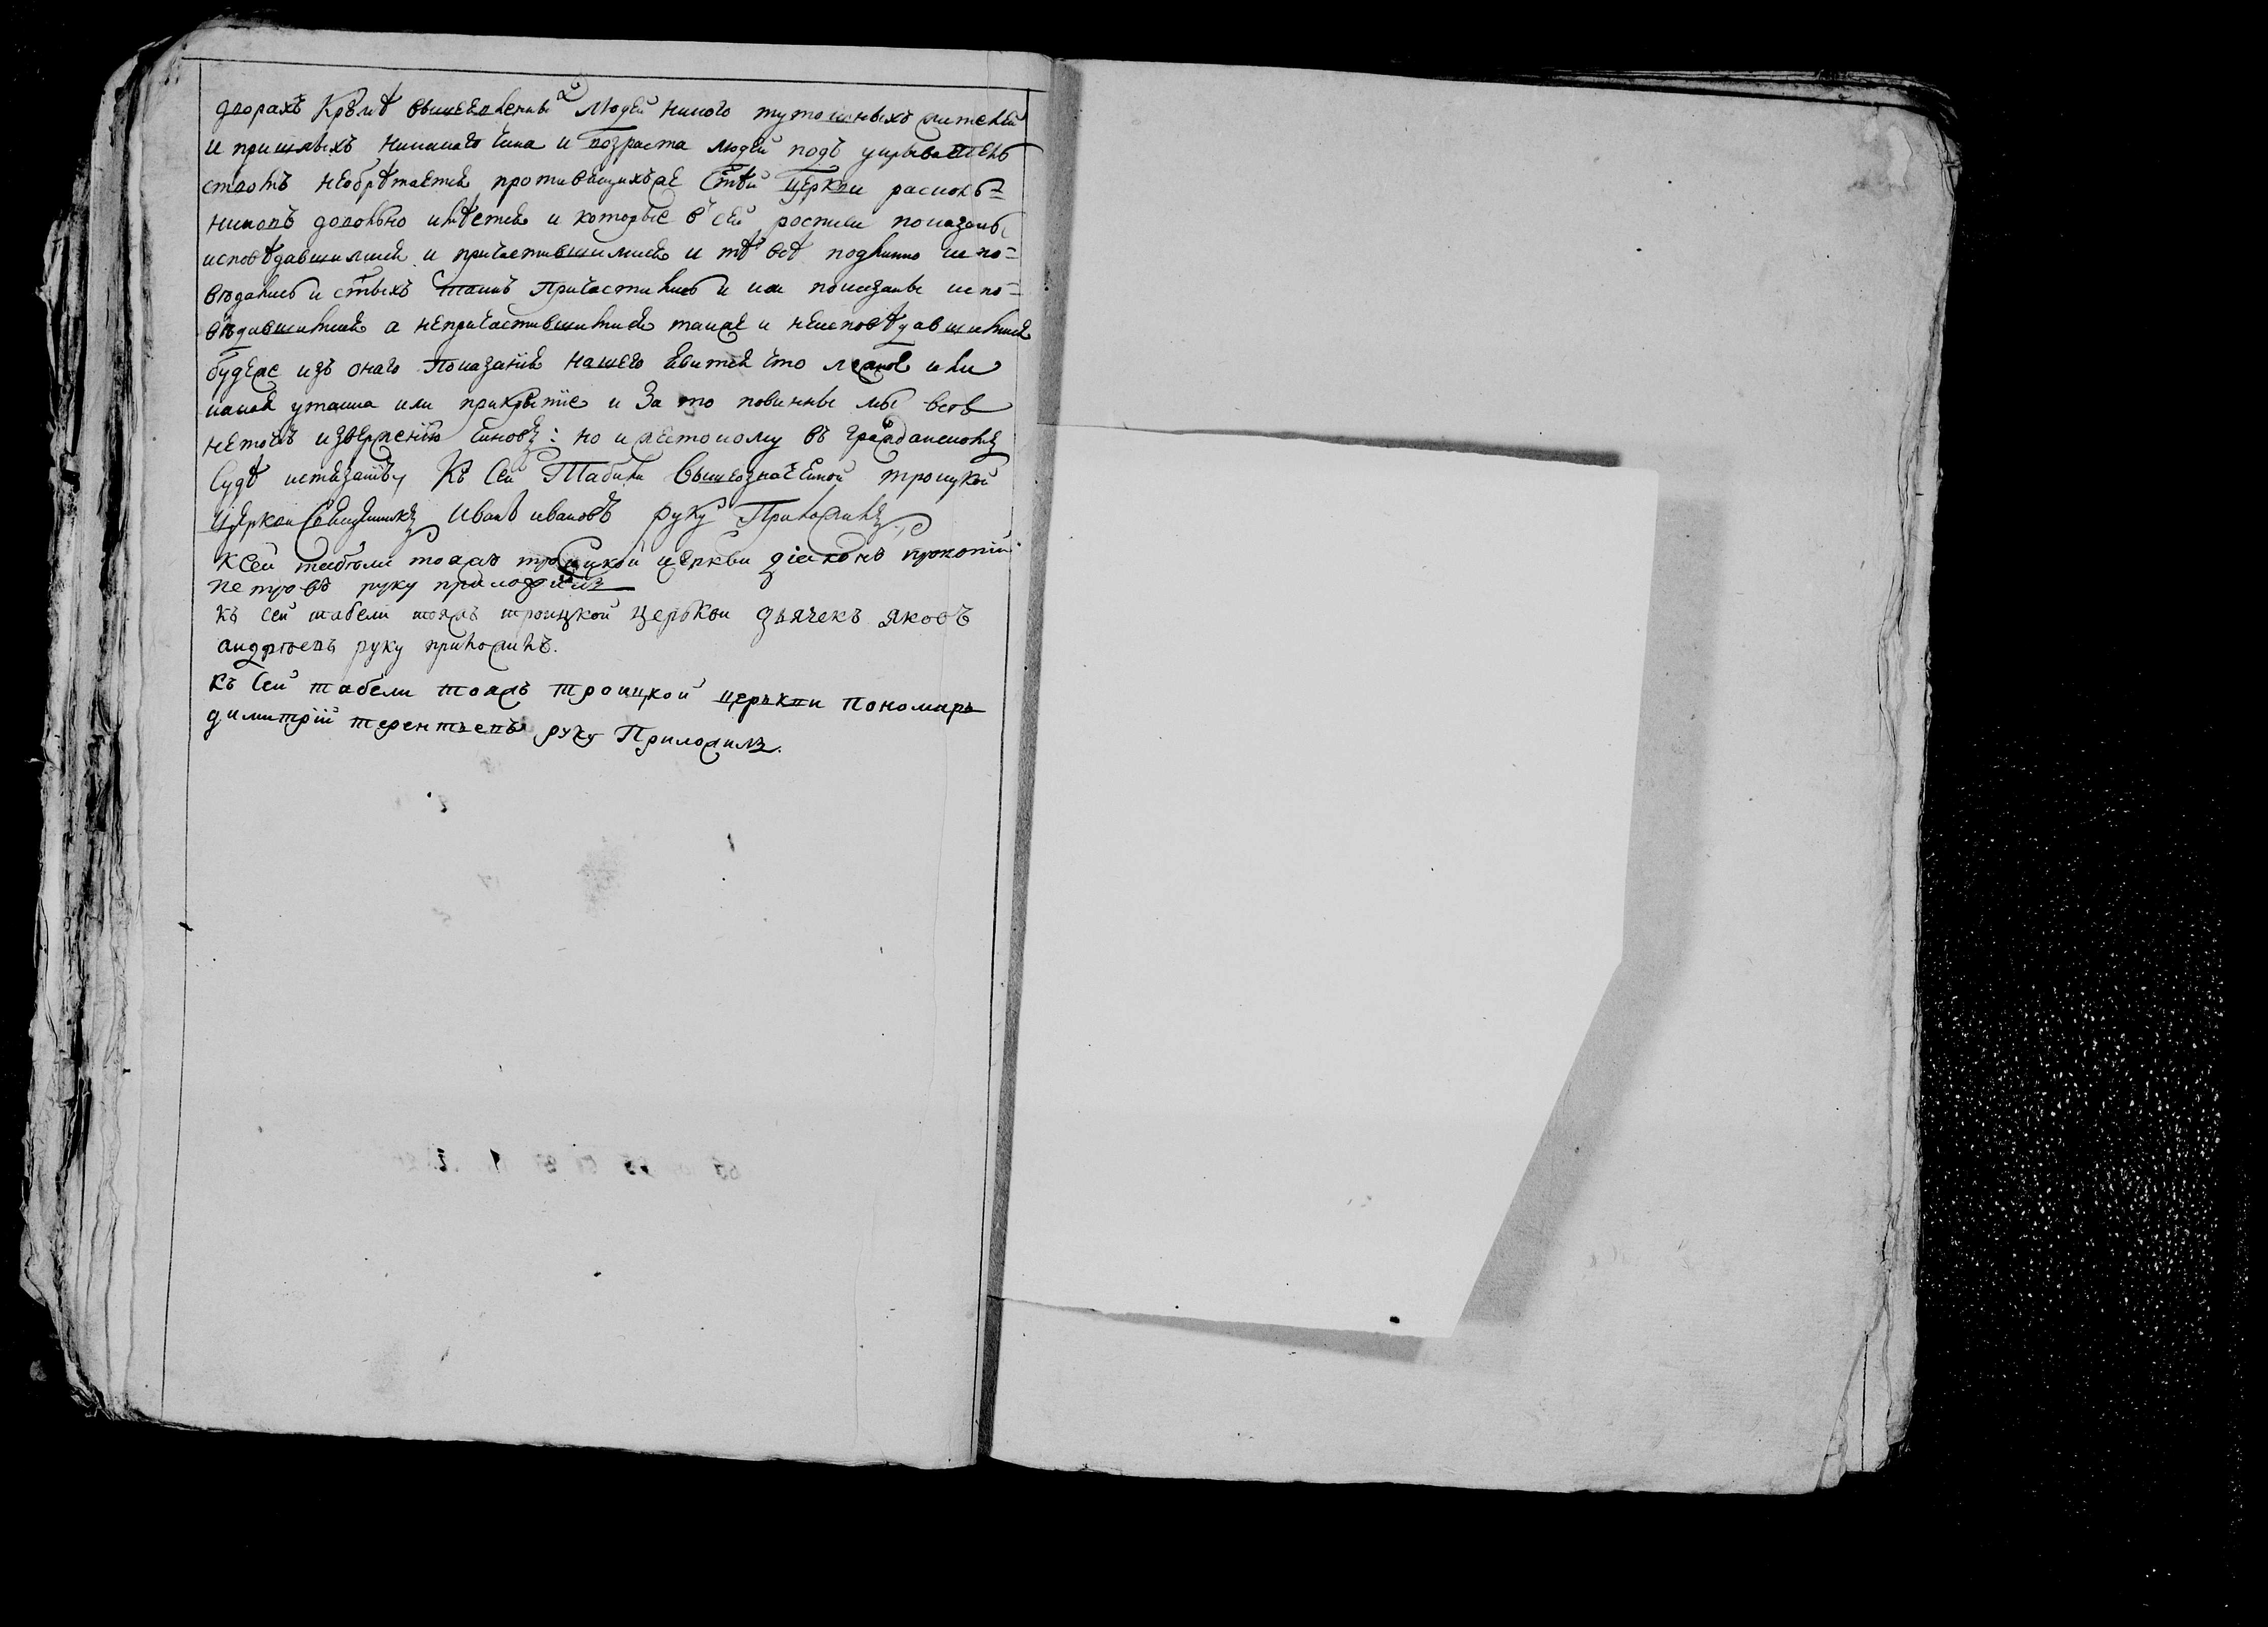 дворахъ кромѣ вышеявленны людей никого тутошныхъ жителей
и пришлыхъ никакаго чина и возраста людей подъ укрывател
ствомъ необрѣтается противящихъже стѣй церкви расколь=
никовъ довольно имѣется и которые в сей росписи показаны
исповѣдавшимися и причастившимися и тѣ всѣ подлинно испо=
вѣдались и стыхъ таинъ причастились и как показаны испо=
вѣдавшимися а непричастившимися также и неисповѣдавшимися
будеже изъ онаго показания нашего явится что лжное или
какая утайка или прикрытіе и за то повинны мы всѣ
неточию извержению чиновъ: но и жестокому въ гражданскомъ
судѣ истязанію къ сей табели вышеозначенной троицкой
церкви священникъ Иванъ ивановъ руку приложилъ
ксей табели тоажъ троицкой церкви діаконъ прокопій
петровъ руку приложилъ
къ сей табели тояжъ троицкой церькви дьячекъ яковъ
андрѣевъ руку приложилъ.
къ сей табели тояжъ троицкой церькви пономарь
димитрій терентьевъ руку приложилъ.